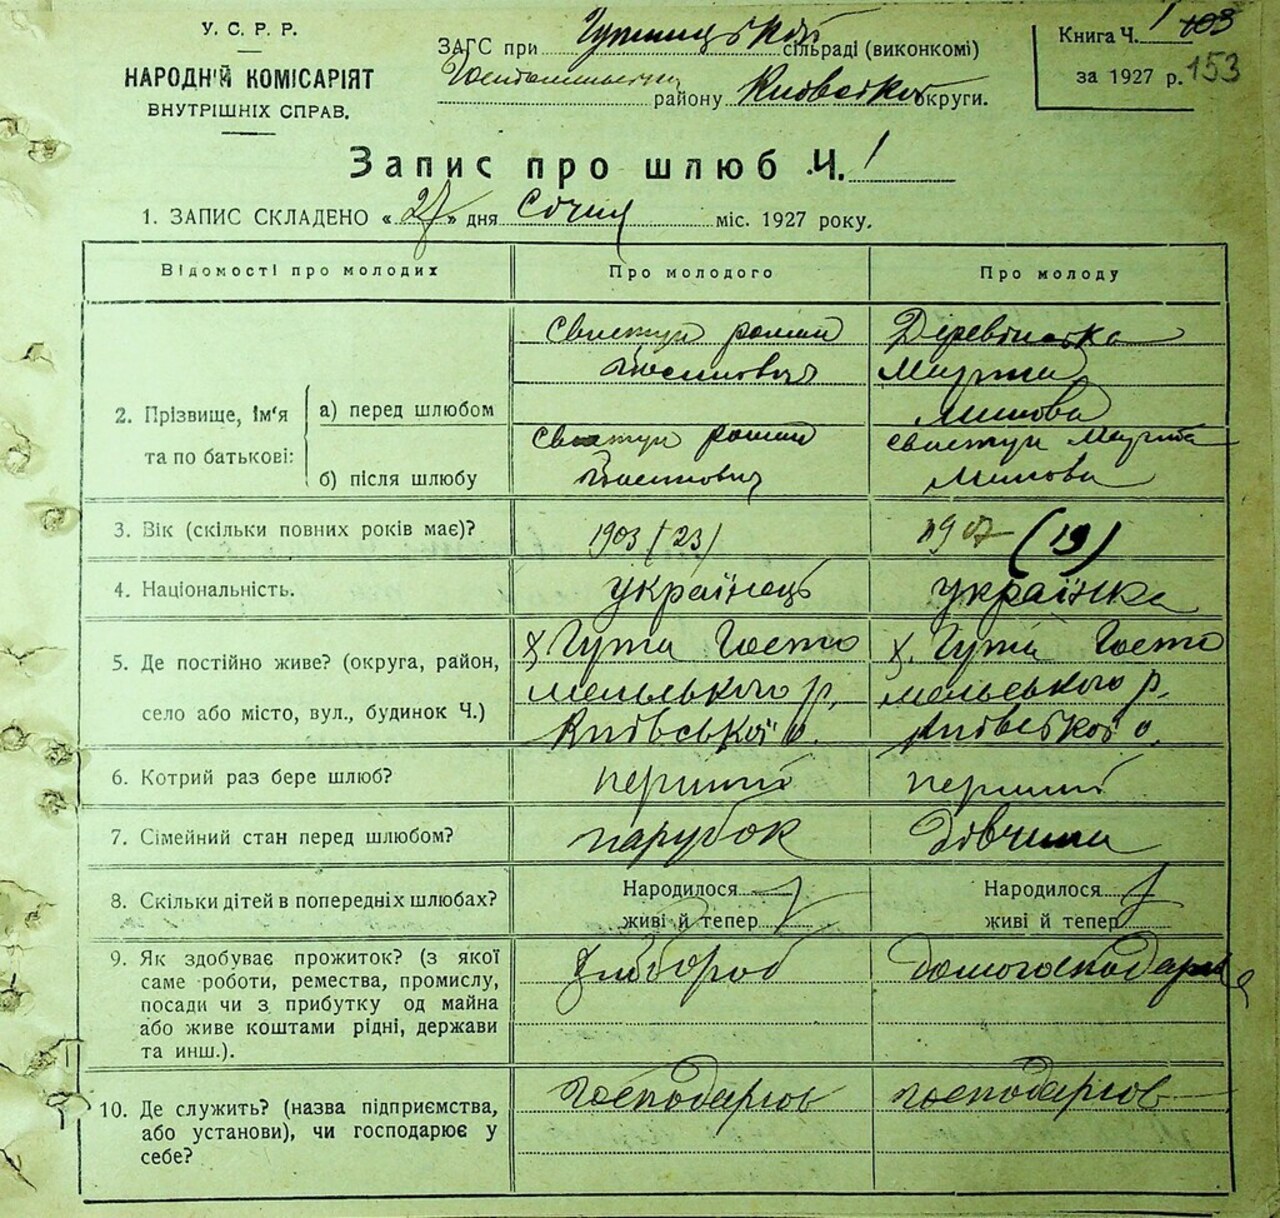 У. С. Р. Р.
НАРОДНІЙ КОМІСАРІЯТ
ВНУТРІШНІХ СПРАВ.
ЗАГС при Гутянській сільраді (виконкомі)
району Київської округи.
Книга Ч. 1 103
за 1927 р. 153
Запис про шлюб Ч. 1
1. ЗАПИС СКЛАДЕНО « 27 » дня Січня міс. 1927 року.
Відомості про молодих
Про молодого
Про молоду
2. Прізвище, ім'я
та по батькові:
а) перед шлюбом
Свистун роман
Деревінська
Марта
б) після шлюбу
Свистун роман
свистун Марта
3. Вік (скільки повних років має)?
1903 (23)
1907 (19)
4. Національність.
українець
українка
5. Де постійно живе? (округа, район,
село або місто, вул., будинок Ч.)
х Гута Госто
мельького р.
Київської о.
х. Гута Госто
мельського р.
Київської о.
6. Котрий раз бере шлюб?
перший
перший
7. Сімейний стан перед шлюбом?
парубок
дівчина
8. Скільки дітей в попередніх шлюбах?
Народилося
живі й тепер
Народилося
живі й тепер
9. Як здобуває прожиток? (з якої
саме роботи, ремества, промислу,
посади чи з прибутку од майна
або живе коштами рідні, держави
та инш.).
хлібороб
домогосподарка
10. Де служить? (назва підприємства,
або установи), чи господарює у
себе?
господарює
господарює